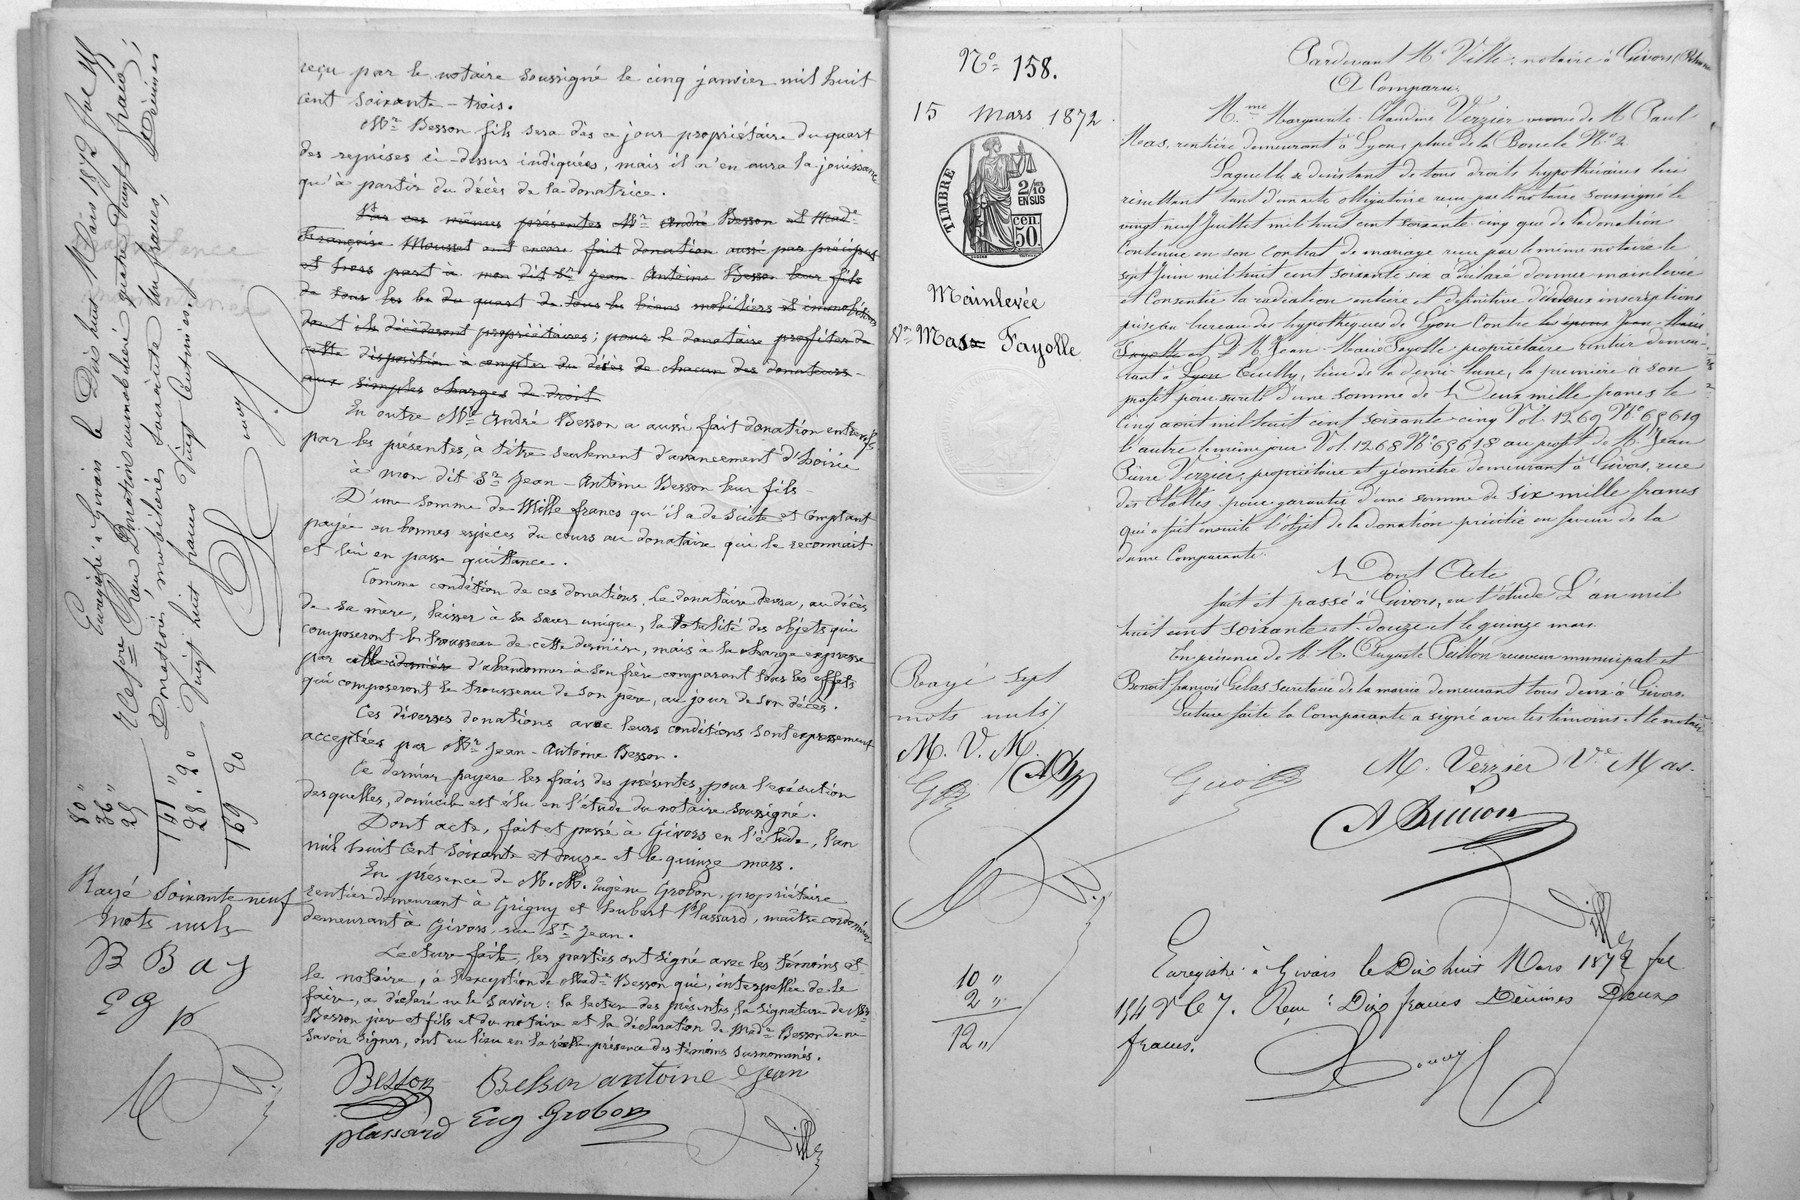 reçu par le notaire soussigné le cinq janvier mil huit
cent soixante-trois.
Mr Besson fils sera dès ce jour propriétaire du quart
des reprises ci-dessus indiquées, mais il n'en aura la jouissance
qu'à partir du décès de la donatrice.
Par ces mêmes présentes Mr André Besson et Made
Françoise Mousset ont encore fait donation aussi par préciput
et hors part à mon dit Sr Jean-Antoine Besson leur fils
de tous les be du quart de tous les biens mobiliers et immobiliers
dont ils décèderont propriétaires; pour le donataire profiter de
cette disposition à compter du décès de chacun des donateurs
aux simples charges de droit.
En outre Mr André Besson a aussi fait donation entrevifs
par les présentes, à titre seulement d'avancement d'hoirie
à mon dit Sr Jean-Antoine Besson leur fils
D'une somme de Mille francs qu'il a de suite et comptant
payée en bonnes espèces du cours au donataire qui le reconnait
et lui en passe quittance.
Comme condition de ces donations, le donataire devra, au décès
de sa mère, laisser à sa sœur unique, la totalité des objets qui
composeront le trousseau de cette dernière, mais à la charge expresse
par cette dernière d'abandonner à son frère comparant tous les effets
qui composeront le trousseau de son père, au jour de son décès.
Ces diverses donations avec leurs conditions sont expressement
acceptées par Mr Jean-Antoine Besson.
Ce dernier payera les frais des présentes, pour l'exécution
desquelles, domicile est élu en l'étude du notaire soussigné.
Dont acte, fait et passé à Givors en l'étude, l'an
mil huit cent soixante et douze et le quinze mars.
En présence de M.M. Eugène Grobon, propriétaire
rentier demeurant à Grigny et Hubert Plassard, maître cordonnier
demeurant à Givors, rue St Jean.
Lecture faite, les parties ont signé avec les témoins et
le notaire, à l'exception de Made Besson qui, interpellée de le
faire, a déclaré ne le savoir: la lecture des présentes, la signature de MM
Besson père et fils et du notaire et la déclaration de Made Besson de ne
savoir signer, ont eu lieu en la réelle présence des témoins susnommés.
Besson Besson antoine Jean
Plassard Eug Grobon
Ville
Enregistré à Givors le Dix huit Mars 1872
Reçu Donation immobilière quatre vingt francs,
Donation mobilière soixante un francs, Décimes
Vingt huit francs Vingt Centimes.
80 "
36 "
25
141 "
28. 20
169 20
Rayé soixante neuf
mots nuls
B B a J
E G P
No 158.
15 Mars 1872
TIMBRE
2/10 EN SUS
50 cen.
Mainlevée
Ve Mas Fayolle
Rayé sept
mots nuls
M. V. M.
10 "
2 "
12 "
Pardevant Me Ville, notaire à Givors, Rhône
A Comparu:
Mme Marguerite-Claudine Verzier veuve de M. Paul
Mas, rentière demeurant à Lyon, place de la Boucle No 2
Laquelle se désistant de tous droits hypothécaires lui
résultant tant d'un acte obligatoire reçu par le notaire soussigné le
vingt neuf Juillet mil huit cent soixante cinq que de la donation
Contenue en son Contrat de mariage reçu par le même notaire le
sept Juin mil huit cent soixante six a déclaré donner mainlevée
et Consentir la radiation entière et définitive de deux inscriptions
prises au bureau des hypothèques de Lyon Contre les époux Jean-Marie
Fayolle et D M. Jean-Marie Fayolle propriétaire rentier demeu-
rant à Lyon Ecully, lieu de la demi-lune, la première à son
profit pour sureté d'une somme de Deux mille francs le
Cinq aout mil huit cent soixante cinq Vol. 1260 No 65619
l'autre le même jour Vol. 1268 No 65618 au profit de M. Jean
Pierre Verzier, propriétaire et géomètre demeurant à Givors, rue
des Etables, pour garantir d'une somme de six mille francs
qui a fait ensuite l'objet de la donation précitée en faveur de la
dame Comparante.
Dont Acte
fait et passé à Givors, en l'étude L'an mil
huit cent soixante et douze et le quinze mars.
En présence de M.M. Auguste Buillon receveur municipal et
Benoit françois Gelas secrétaire de la mairie demeurant tous deux à Givors.
Lecture faite la Comparante a signé avec les témoins et le notaire
M. Verzier Ve Mas.
Ville
Enregistré à Givors le Dix huit Mars 1872 fol
154 Vo C 7. Reçu: Dix francs Décimes Deux
francs.